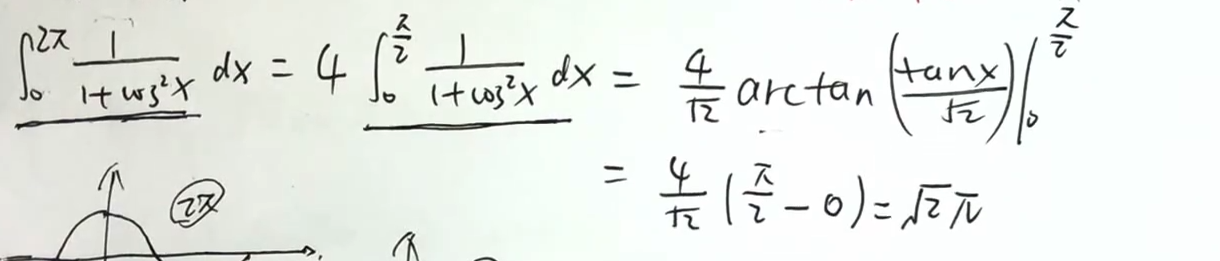 ∫₀^{2π} 1/(1+cos²x) dx = 4 ∫₀^{π/2} 1/(1+cos²x) dx = 4/√2 arctan(tanx/√2)|₀^{π/2}
= 4/√2 (π/2 − 0) = √2 π
2π